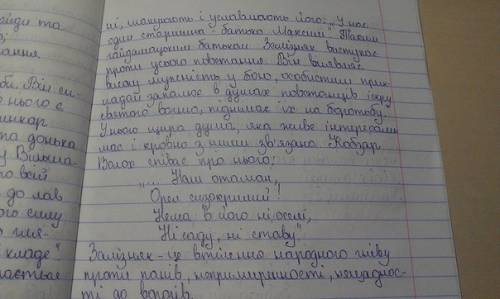 йди та
зі
ання.
би. Він си-
нього є
шикар
та донька
у Вільша-
о всій
до лав
ого силу
кладе"
ається
ні, шанують і уславляють його: „У нас
один старшина - батько Максим". Таким
гайдамацьким батьком Залізняк виступає
проти усього повстання. Він виявляє
високу мужність у бою, особистим прик-
ладом запалює в душах повстанців іскру
святого вогню, піднімає їх на боротьбу.
У нього щира душа, яка живе інтересами
мас і кровно з ними зв'язана. Кобзар
Волох співає про нього:
„... Наш отаман,
Орел сизокрилий!
Нема "в його ні оселі,
Ні саду, ні ставу"
Залізняк - це втілення народного гніву
проти панів, непримиренності, нещаднос-
ті до ворогів.